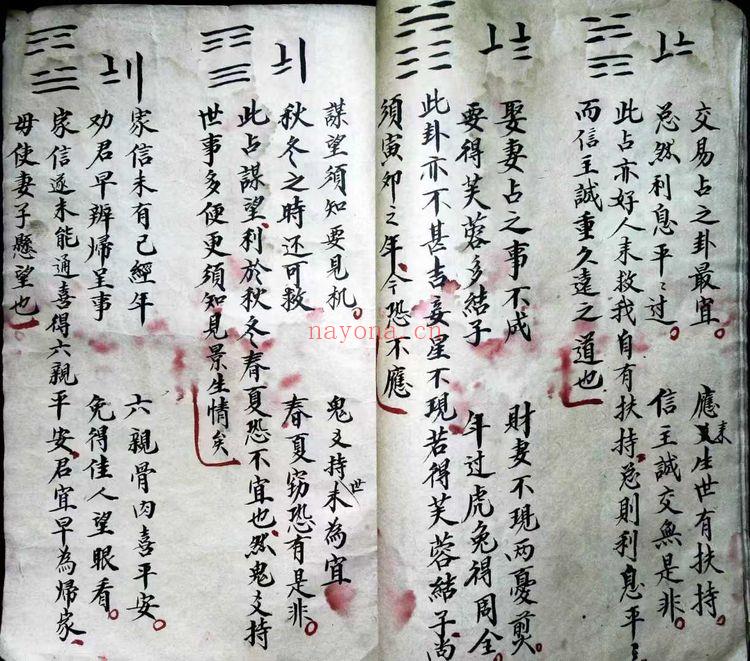 交易占之卦最宜。應來生世有扶持。
总然利息平〻过。信主誠交無是非。
此占亦好人來救我自有扶持。总則利息平〻
而信主誠重久遠之道也
娶妻占之事不成 財妻不現两憂煎。
要得芙蓉多結子 年过虎兔得周全
此卦亦不甚吉妄星不現若得芙蓉結子尚
須寅卯之年、今恐不應
謀望須知要見机。鬼爻持世未為宜
秋冬之時还可救 春夏窃恐有是非。
此占謀望、利於秋冬春夏恐不宜也、然鬼爻持
世事多便更須知見景生情矣
家信未有已經年 六親骨肉喜平安。
劝君早辦帰呈事 免得佳人望眼看。
家信遂未能通喜得六親平安、君宜早為帰家、
毋使妻子懸望也
nayona.cn